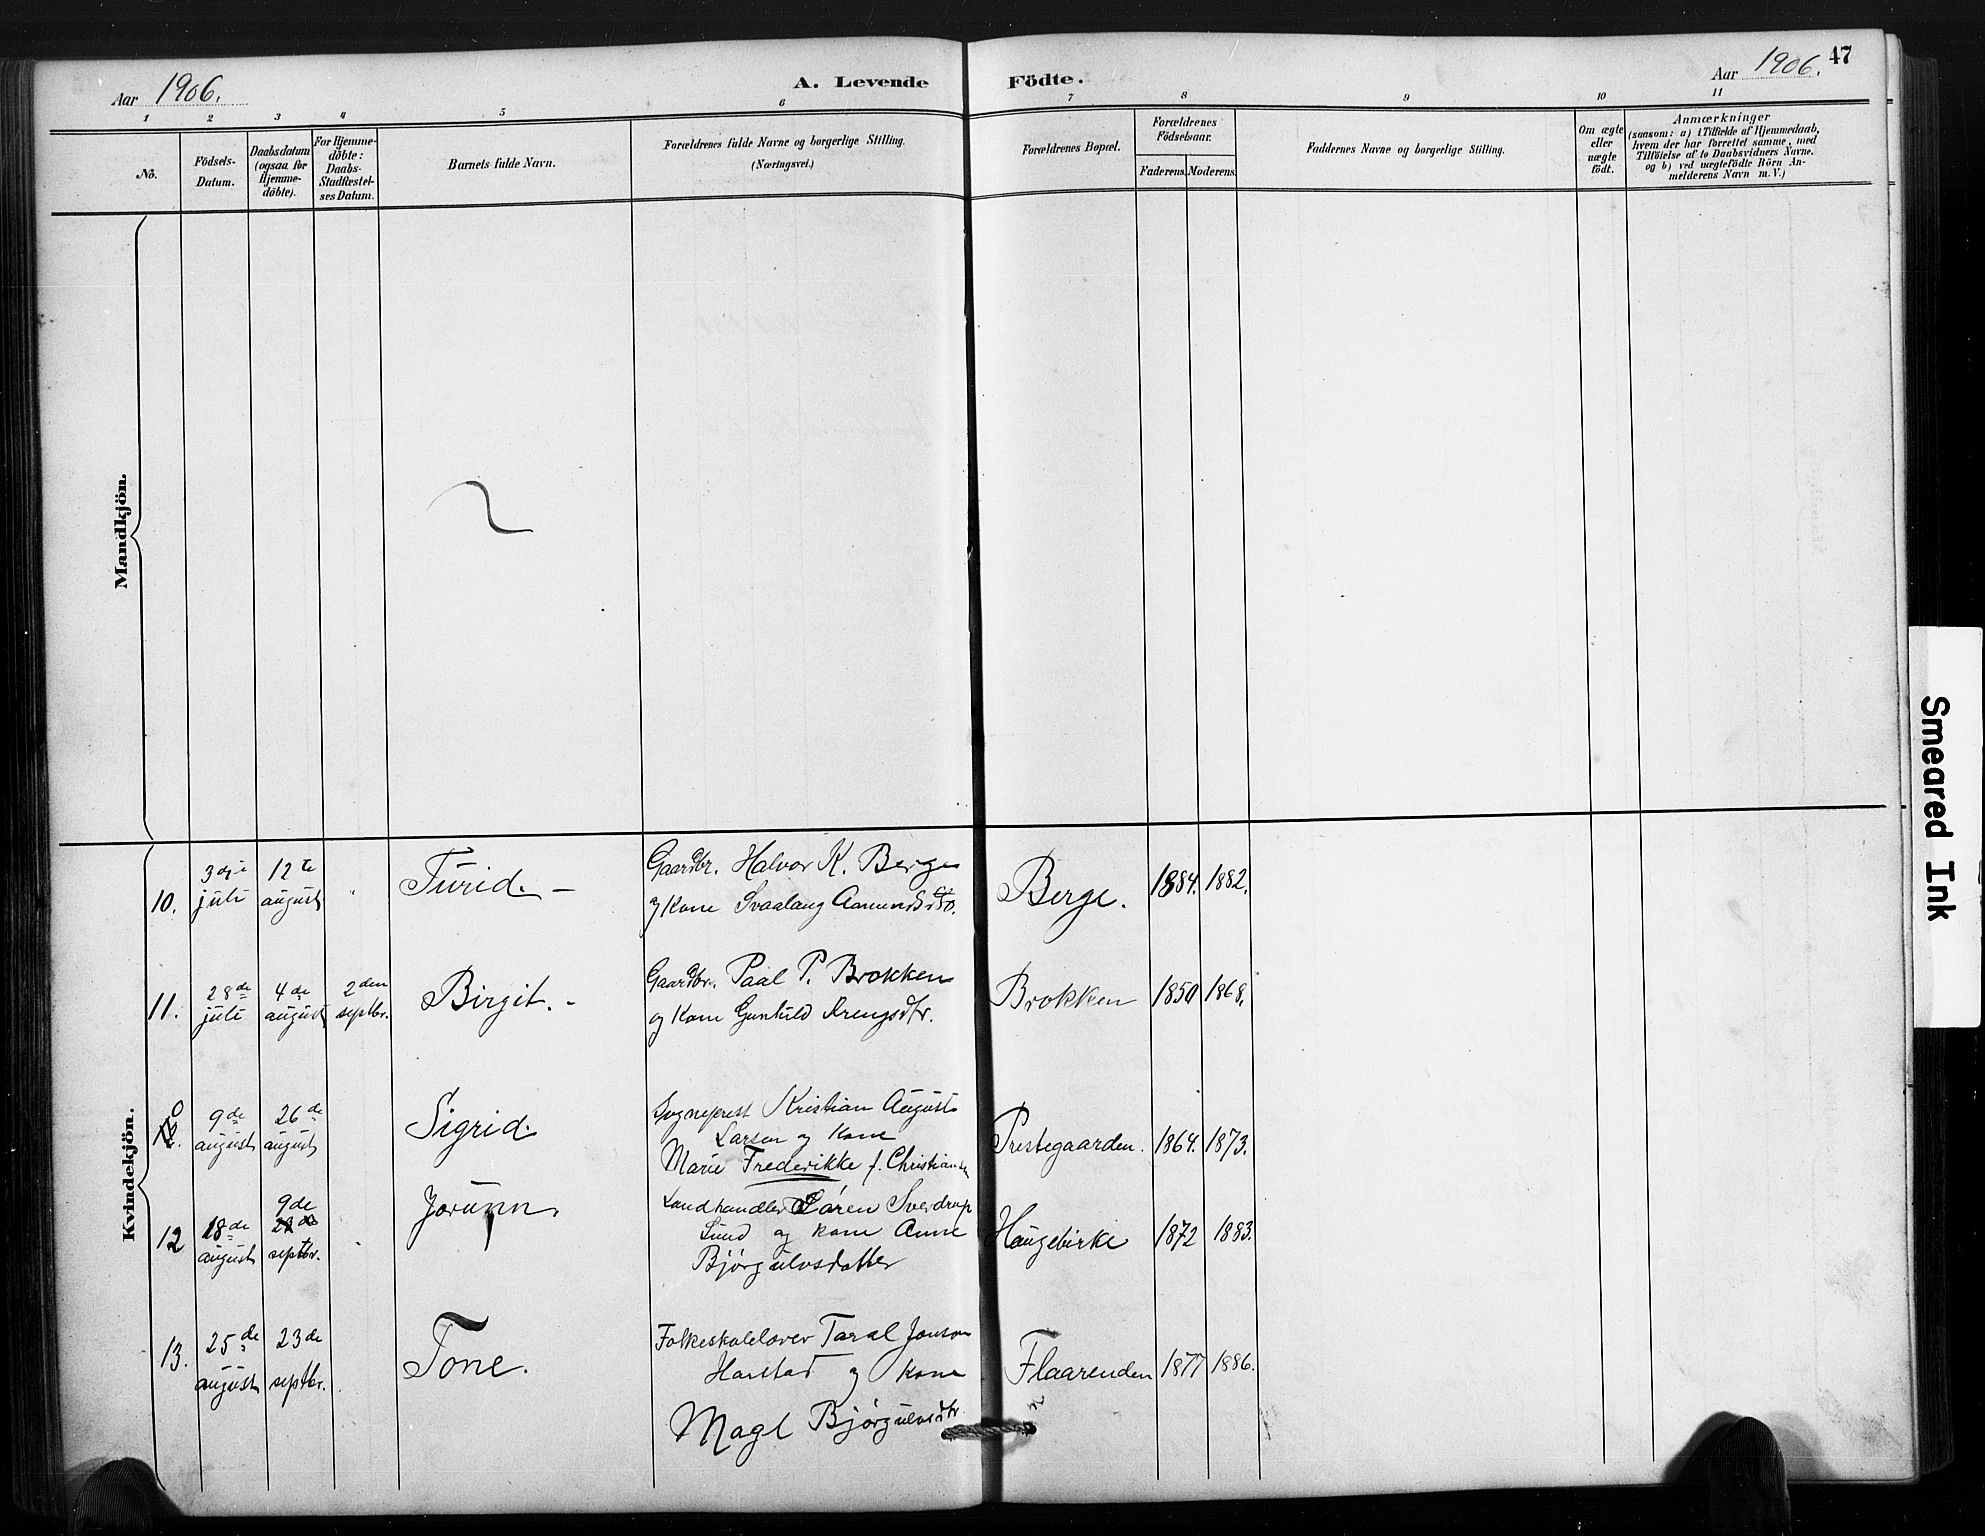 47
Aar 1906.
A. Levende Födte.
Aar 1906.
1 2 3 4 5 6 7 8 9 10 11
No.
Födsels-
Datum.
Daabsdatum
(ogsaa for
Hjemme-
döbte).
For Hjemme-
döbte:
Daabs-
Stadfæstel-
ses Datum.
Barnets fulde Navn.
Forældrenes fulde Navne og borgerlige Stilling.
(Næringsvei.)
Forældrenes Bopæl.
Forældrenes
Födselsaar.
Faderens. Moderens.
Faddernes Navne og borgerlige Stilling.
Om ægte
eller
uægte
födt.
Anmærkninger
(saasom: a) i Tilfælde af Hjemmedaab,
hvem der har forrettet samme, med
Tilföielse af to Daabsvidners Navne.
og b) ved uægtefödte Börn An-
melderens Navn m. V.)
Mandkjön.
Kvindekjön.
10.
3die
juli
12te
august
Turid. –
Gaardbr. Halvor K. Berge
og Kone Svaalaug Aamunds
Berge.
1884. 1882.
11.
28de
juli
4de
august
2den
septbr.
Birgit. –
Gaardbr. Paal P. Brokken
og Kone Gunhild
Brokken
1850 1868.
9de
august
26de
august
Sigrid.
Sogneprest Kristian August
Larsen og Kone
Marie Frederikke f. Christiansen
Prestegaarden.
1864. 1873.
12
18de
august
9de
septbr.
Jorunn.
Landhandler Sören Sverdrup
Lund og kone Anne
Bjørgulvsdatter
Haugebirke
1872 1883.
13.
25de
august
23de
septbr.
Tone.
Folkeskolelærer Taral Jonson
og kone
Bjørgulvsdtr.
Flaarenden
1877 1886.
Smeared Ink